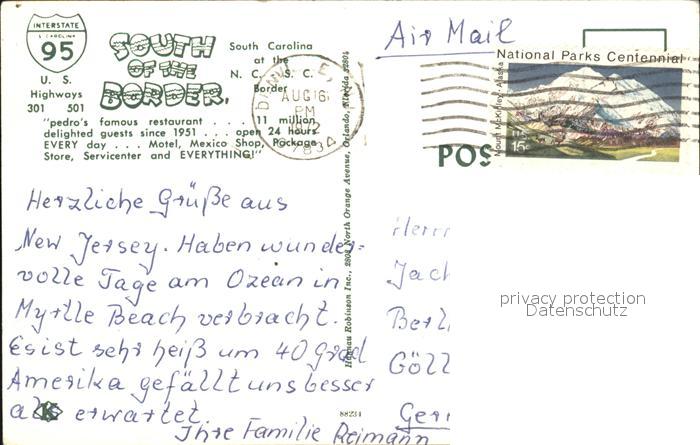 INTERSTATE
S. CAROLINA
95
U. S.
Highways
301 501
SOUTH
OF THE
BORDER,
South Carolina
at the
N. C. - S. C.
Border
"pedro's famous restaurant . . . . 11 million
delighted guests since 1951 . . . open 24 hours
EVERY day . . . Motel, Mexico Shop, Package
Store, Servicenter and EVERYTHING!"
AUG 16
PM
Air Mail
National Parks Centennial
Mount McKinley, Alaska
15c
POS
Herzliche Grüße aus
New Jersey. Haben wunder=
volle Tage am Ozean in
Myrtle Beach verbracht.
Es ist sehr heiß um 40 Grad
Amerika gefällt uns besser
als erwartet.
Ihre Familie Reimann
K
88234
Robinson Inc., 2808 North Orange Avenue, Orlando, Florida 32804
Herr
Jach
Berl
Göll
Ger
privacy protection
Datenschutz